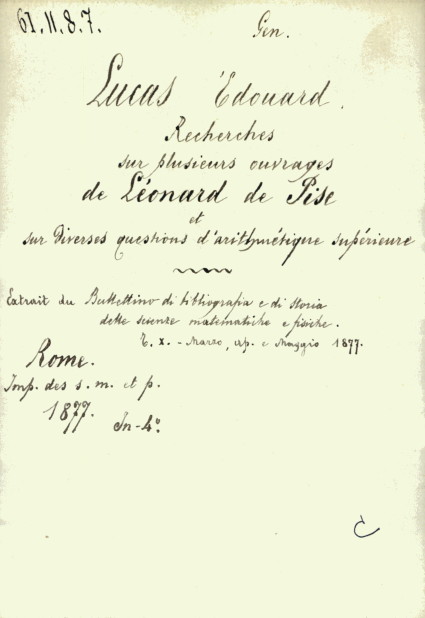 61.11.8.7.
Gen.
Lucas Édouard.
Recherches
sur plusieurs ouvrages
de Léonard de Pise
et
sur Diverses questions d'arithmétique supérieure
Extrait du Bullettino di bibliografia e di storia
delle scienze matematiche e fisiche.
T. X. - Marzo, ap. e Maggio 1877.
Rome.
Imp. des s. m. et p.
1877.
In-4°.
C